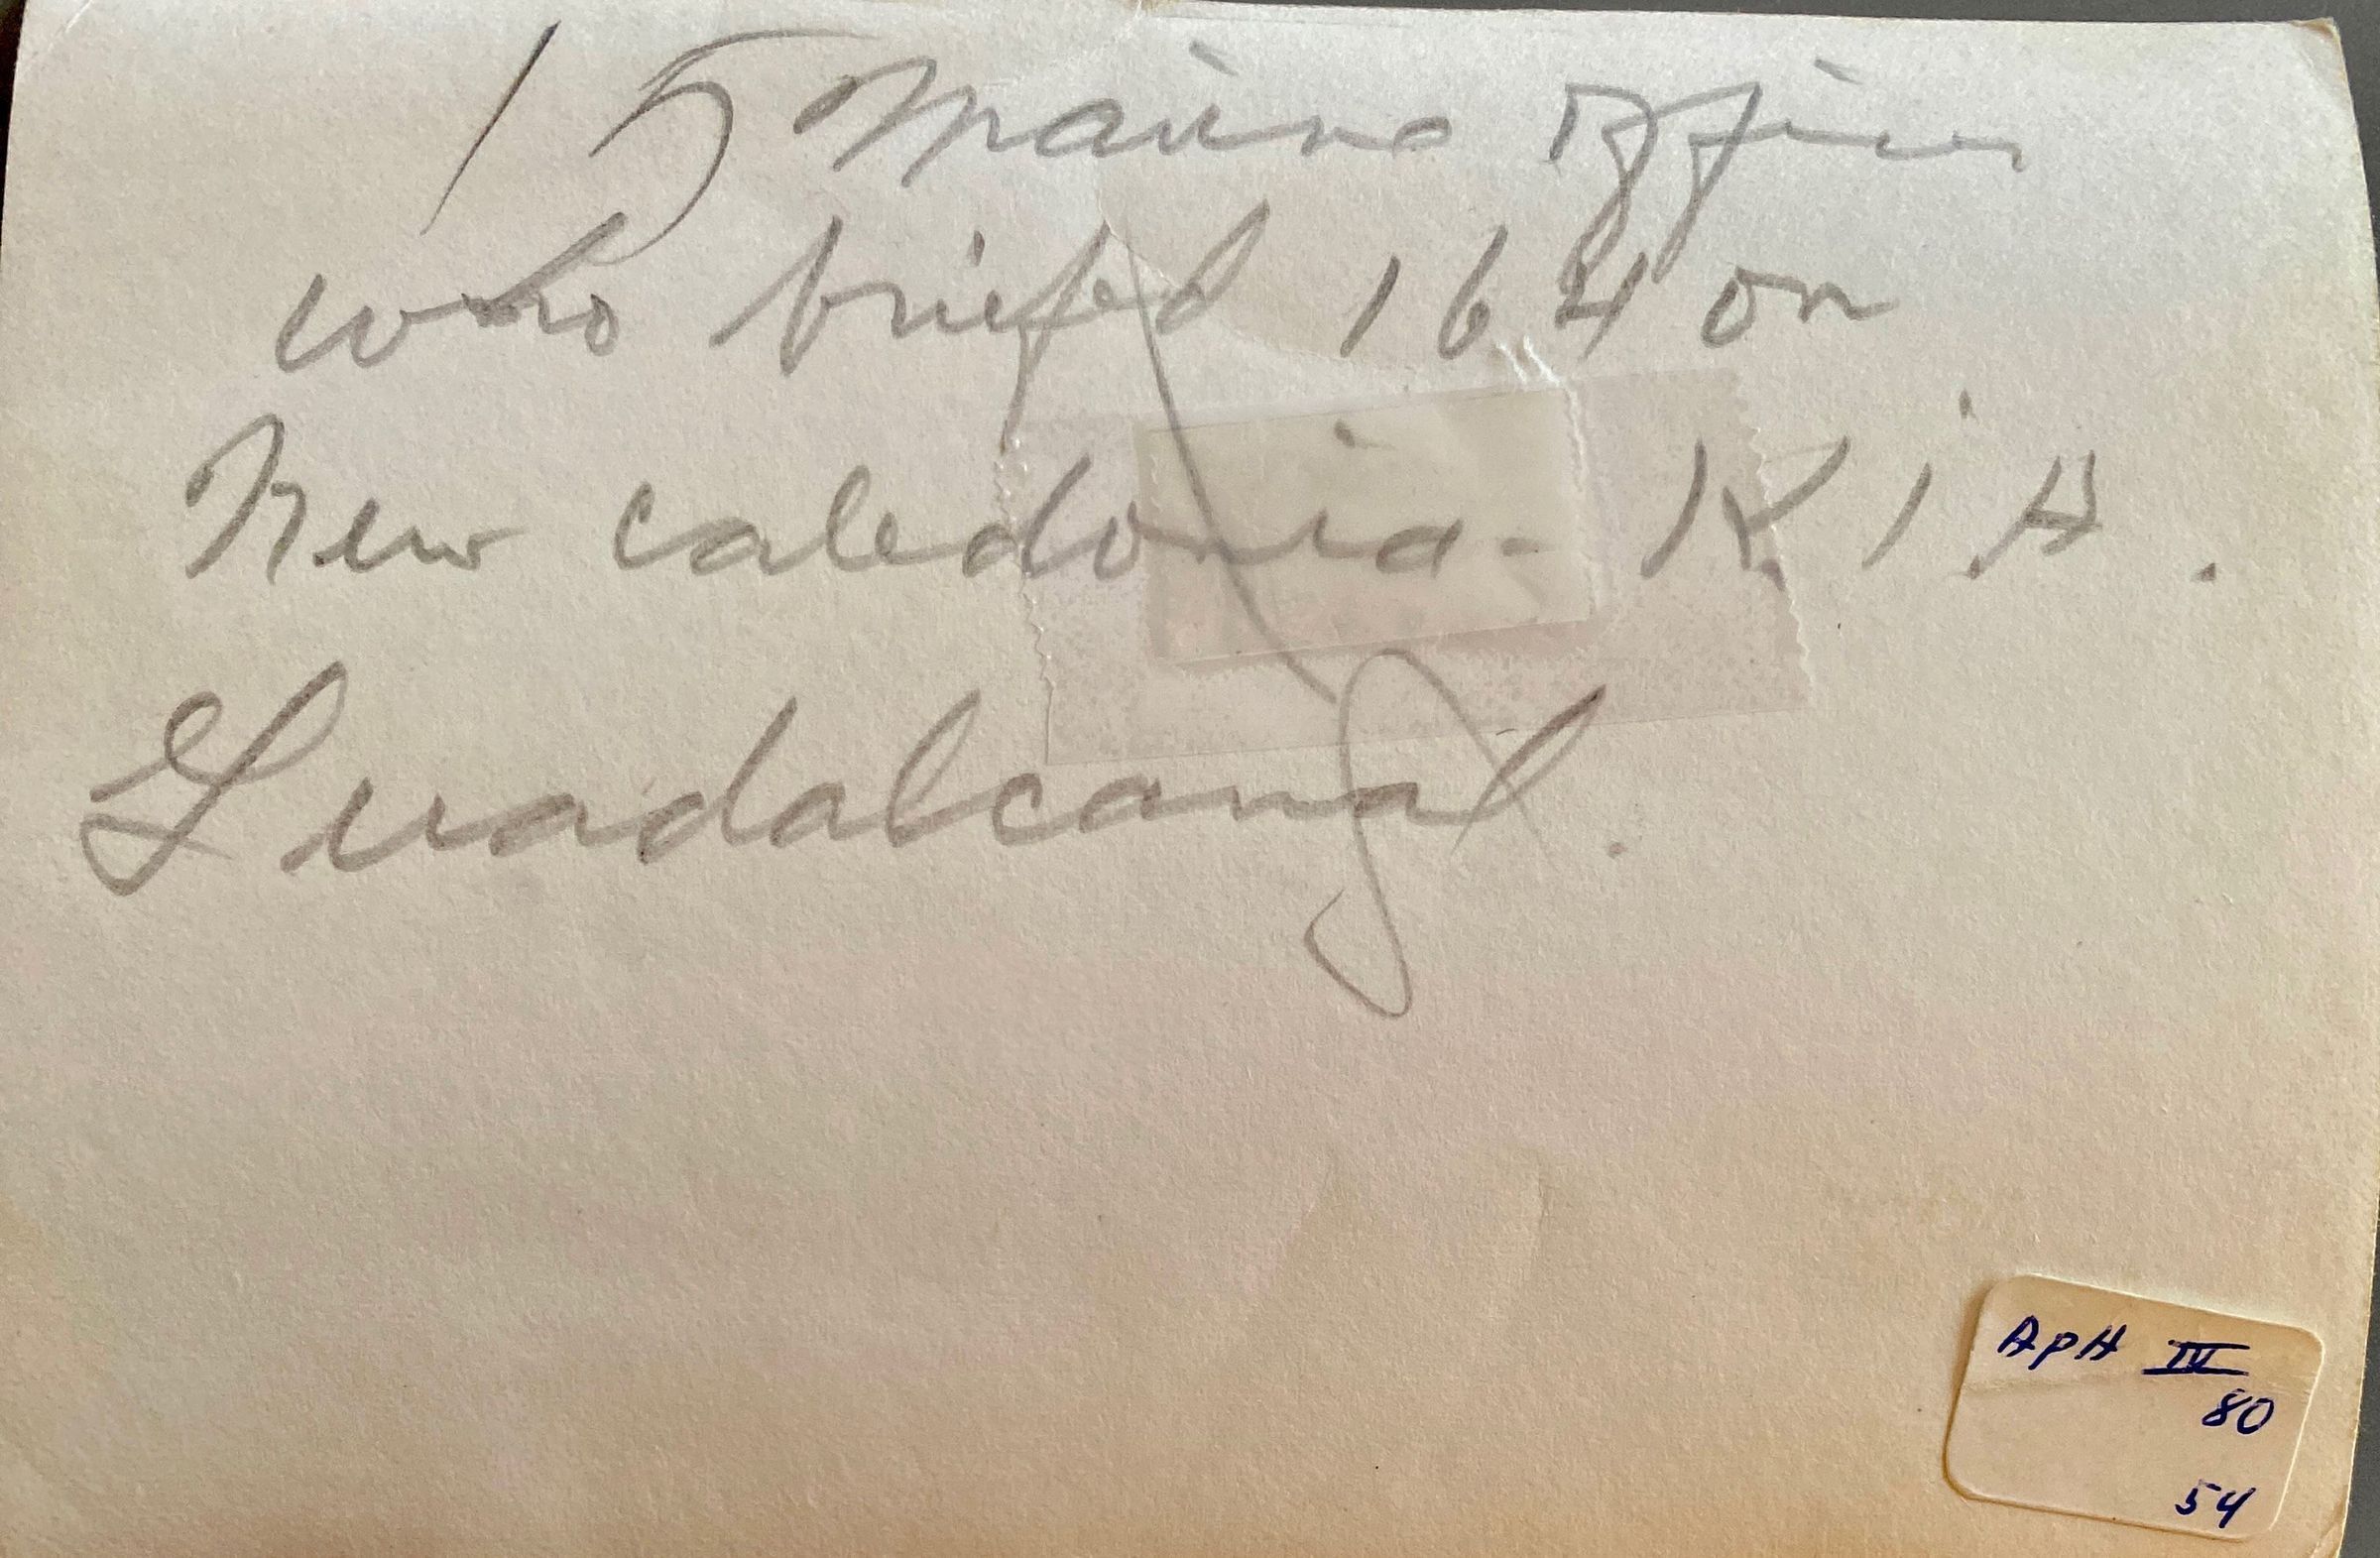 15 Marine officer
who briefed 164 on
New Caledonia - K.I.A.
Guadalcanal.
APH IV
80
54